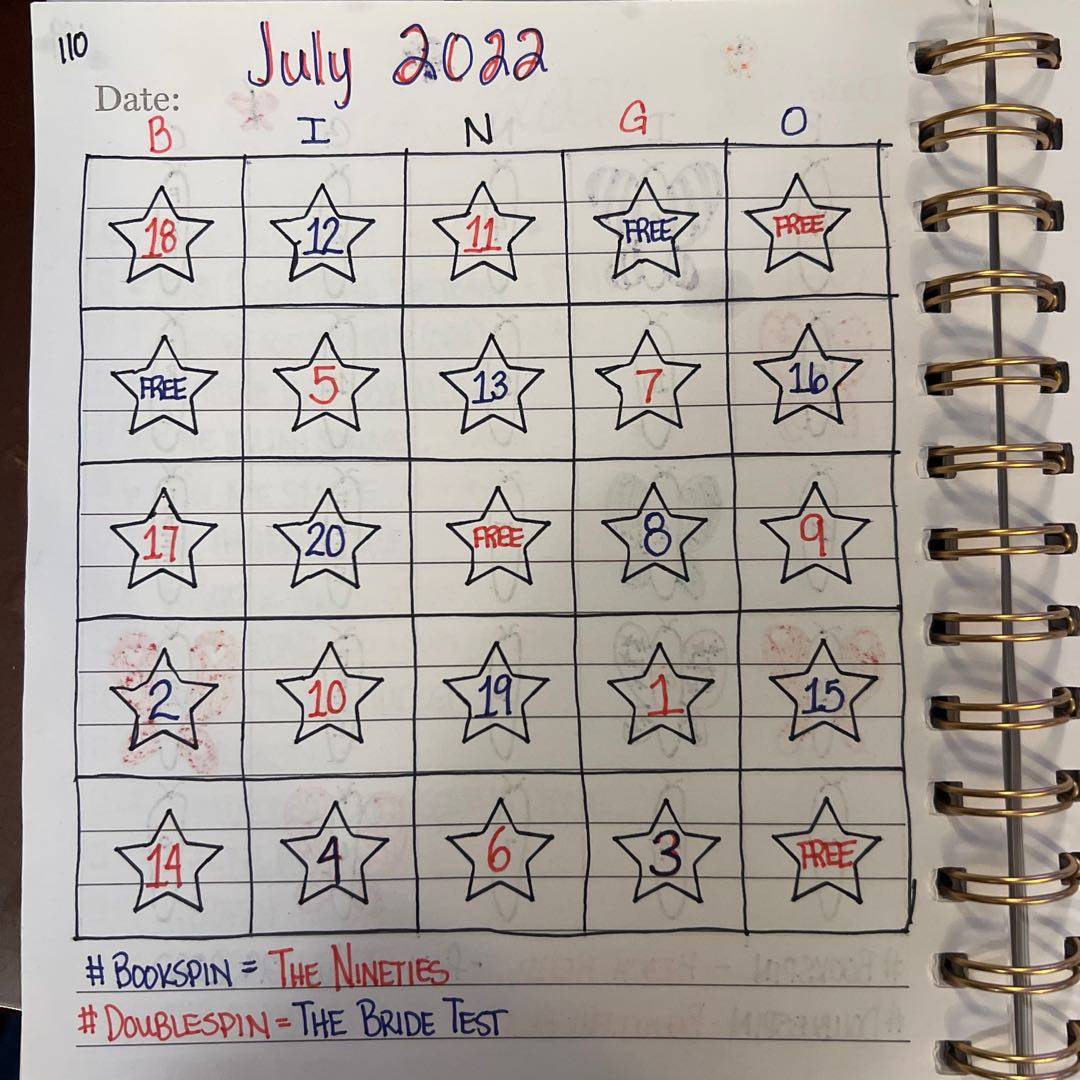 110
July 2022
Date:
B I N G O
18 12 11 FREE FREE
FREE 5 13 7 16
17 20 FREE 8 9
2 10 19 1 15
14 4 6 3 FREE
# BOOKSPIN = THE NINETIES
# DOUBLESPIN = THE BRIDE TEST